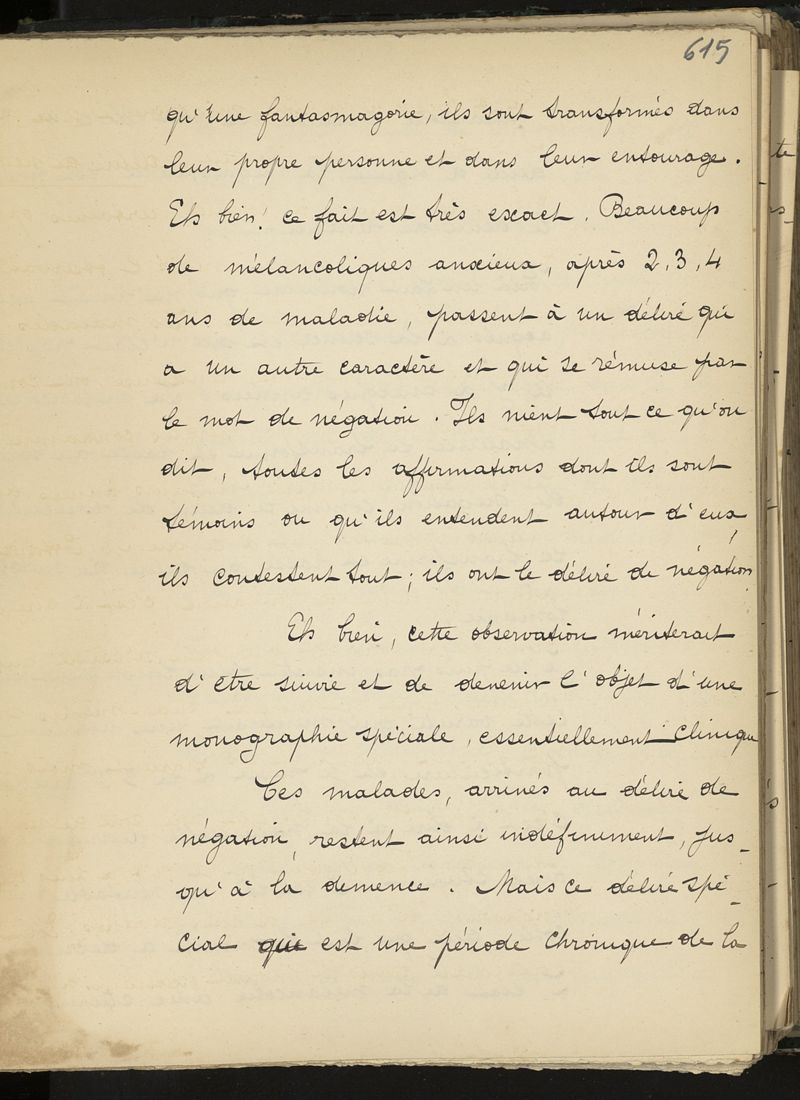 615
qu'une fantasmagorie, ils sont transformés dans
leur propre personne et dans leur entourage.
Eh bien! ce fait est très exact. Beaucoup
de mélancoliques anxieux, après 2, 3, 4
ans de maladie, passent à un délire qui
a un autre caractère et qui se résume par
le mot de négation. Ils nient tout ce qu'on
dit, toutes les affirmations dont ils sont
témoins ou qu'ils entendent autour d'eux,
ils contestent tout; ils ont le délire de négation.
Eh bien, cette observation mériterait
d'être suivie et de devenir l'objet d'une
monographie spéciale, essentiellement clinique
Ces malades, arrivés au délire de
négation, restent ainsi indéfiniment, jus-
qu'à la démence. Mais ce délire spé-
cial qui est une période chronique de la
te
s